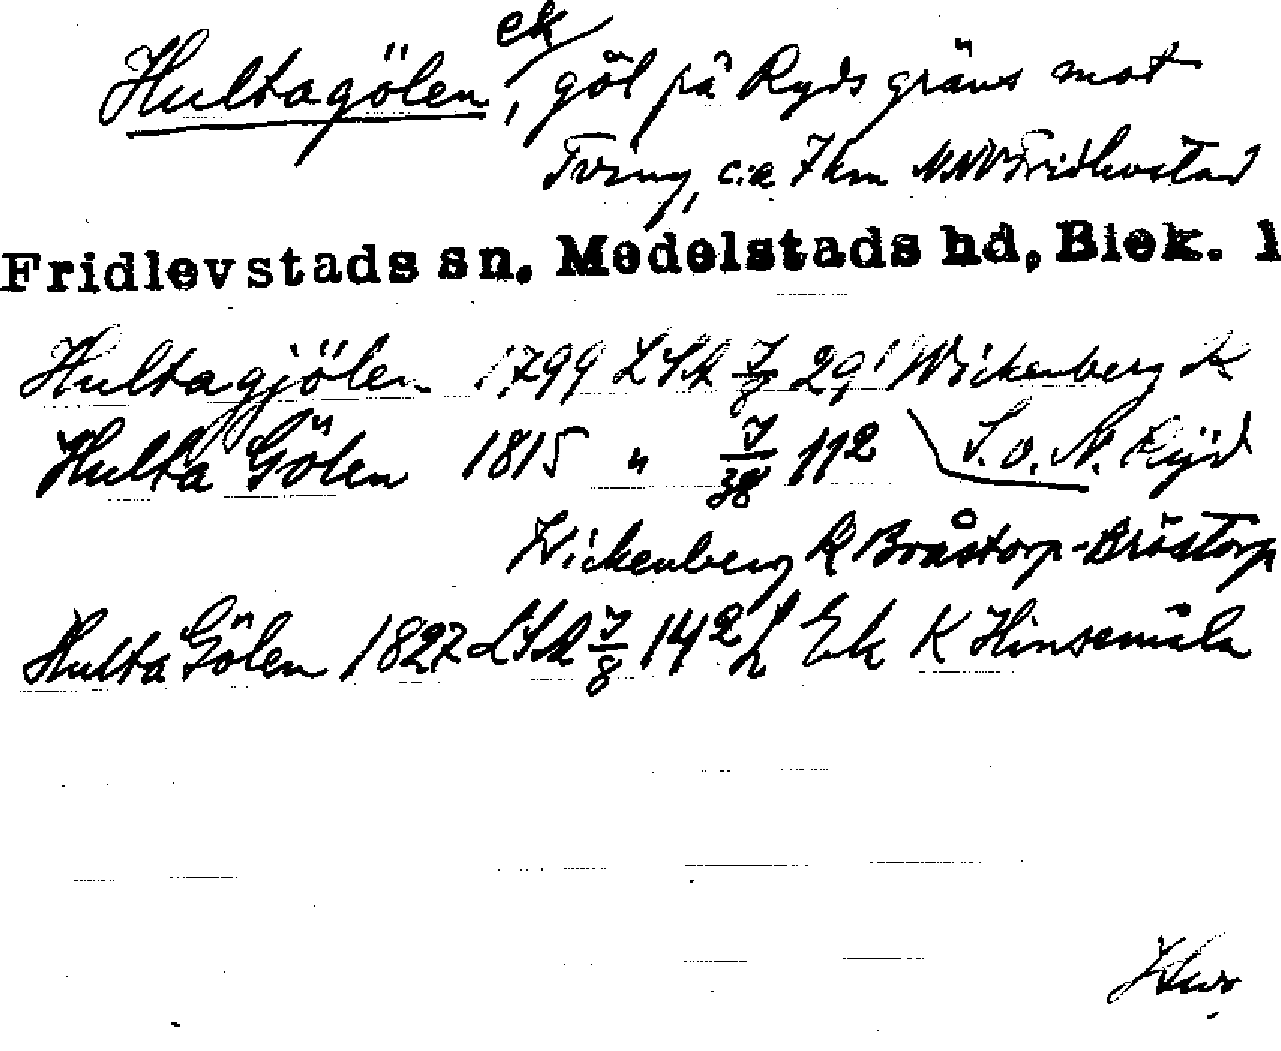 Hultagölen, ek/ göl på Ryds gräns mot
Tving, c:a 7 km NNV Fridlevstad
Fridlevstads sn. Medelstads hd, Blek. 1
Hultagjölen 1799 LSA J/8 29¹ Wickenberg K
Hulta Gölen 1815 " J/38 11² S. o. N. Ryd
Wickenberg K Bråstorp-Bröstorp
Hulta Gölen 1827 LSA J/8 14² L Ek K Hinsemåla